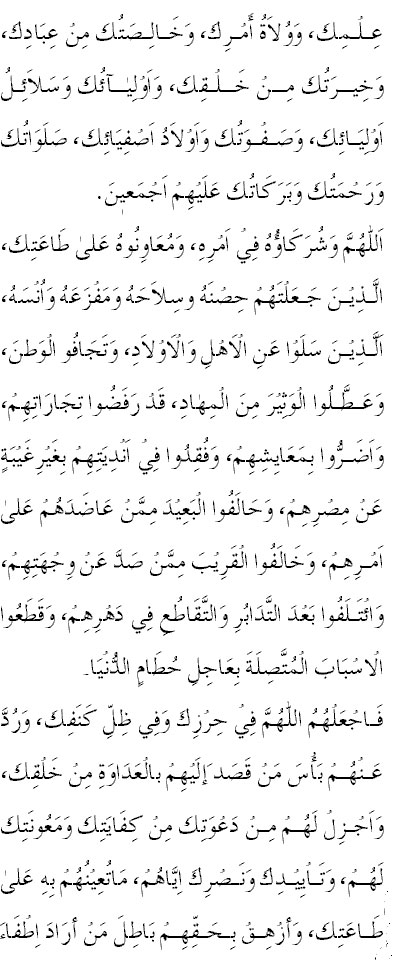 عِلْمِكَ، وَوُلَاةُ أَمْرِكَ، وَخَالِصَتُكَ مِنْ عِبَادِكَ،
وَخِيَرَتُكَ مِنْ خَلْقِكَ، وَاَوْلِيَآئُكَ وَسَلَائِلُ
اَوْلِيَائِكَ، وَصَفْوَتُكَ وَاَوْلَادُ اَصْفِيَائِكَ، صَلَوَاتُكَ
وَرَحْمَتُكَ وَبَرَكَاتُكَ عَلَيْهِمْ اَجْمَعِينَ.
اَللّٰهُمَّ وَشُرَكَاؤُهُ فِيْ اَمْرِهِ، وَمُعَاوِنُوهُ عَلىٰ طَاعَتِكَ،
الَّذِيْنَ جَعَلْتَهُمْ حِصْنَهُ وسِلَاحَهُ وَمَفْزَعَهُ وَاُنْسَهُ،
اَلَّذِيْنَ سَلَوْا عَنِ الْاَهْلِ وَالْاَوْلَادِ، وَتَجَافُو الْوَطَنَ،
وَعَطَّلُوا الْوَثِيْرَ مِنَ الْمِهَادِ، قَدْ رَفَضُوا تِجَارَاتِهِمْ،
وَاَضَرُّوا بِمَعَايِشِهِمْ، وَفُقِدُوا فِيْ اَنْدِيَتِهِمْ بِغَيْرِ غَيْبَةٍ
عَنْ مِصْرِهِمْ، وَحَالَفُوا الْبَعِيْدَ مِمَّنْ عَاضَدَهُمْ عَلىٰ
اَمْرِهِمْ، وَخَالَفُوا الْقَرِيْبَ مِمَّنْ صَدَّ عَنْ وِجْهَتِهِمْ،
وَائْتَلَفُوا بَعْدَ التَّدَابُرِ وَالتَّقَاطُعِ فِي دَهْرِهِمْ، وَقَطَعُوا
الْاَسْبَابَ الْمُتَّصِلَةَ بِعَاجِلِ حُطَامِ الدُّنْيَا۔
فَاجْعَلْهُمُ اللّٰهُمَّ فِيْ حِرْزِكَ وَفِي ظِلِّ كَنَفِكَ، وَرُدَّ
عَنْهُمْ بَأْسَ مَنْ قَصَدَ إِلَيْهِمْ بِالْعَدَاوَةِ مِنْ خَلْقِكَ،
وَاَجْزِلْ لَهُمْ مِنْ دَعْوَتِكَ مِنْ كِفَايَتِكَ وَمَعُونَتِكَ
لَهُمْ، وَتَاْيِيْدِكَ وَنَصْرِكَ اِيَّاهُمْ، مَاتُعِيْنُهُمْ بِهِ عَلىٰ
طَاعَتِكَ، وَأَزْهِقْ بِحَقِّهِمْ بَاطِلَ مَنْ أَرَادَ اِطْفَاءَ